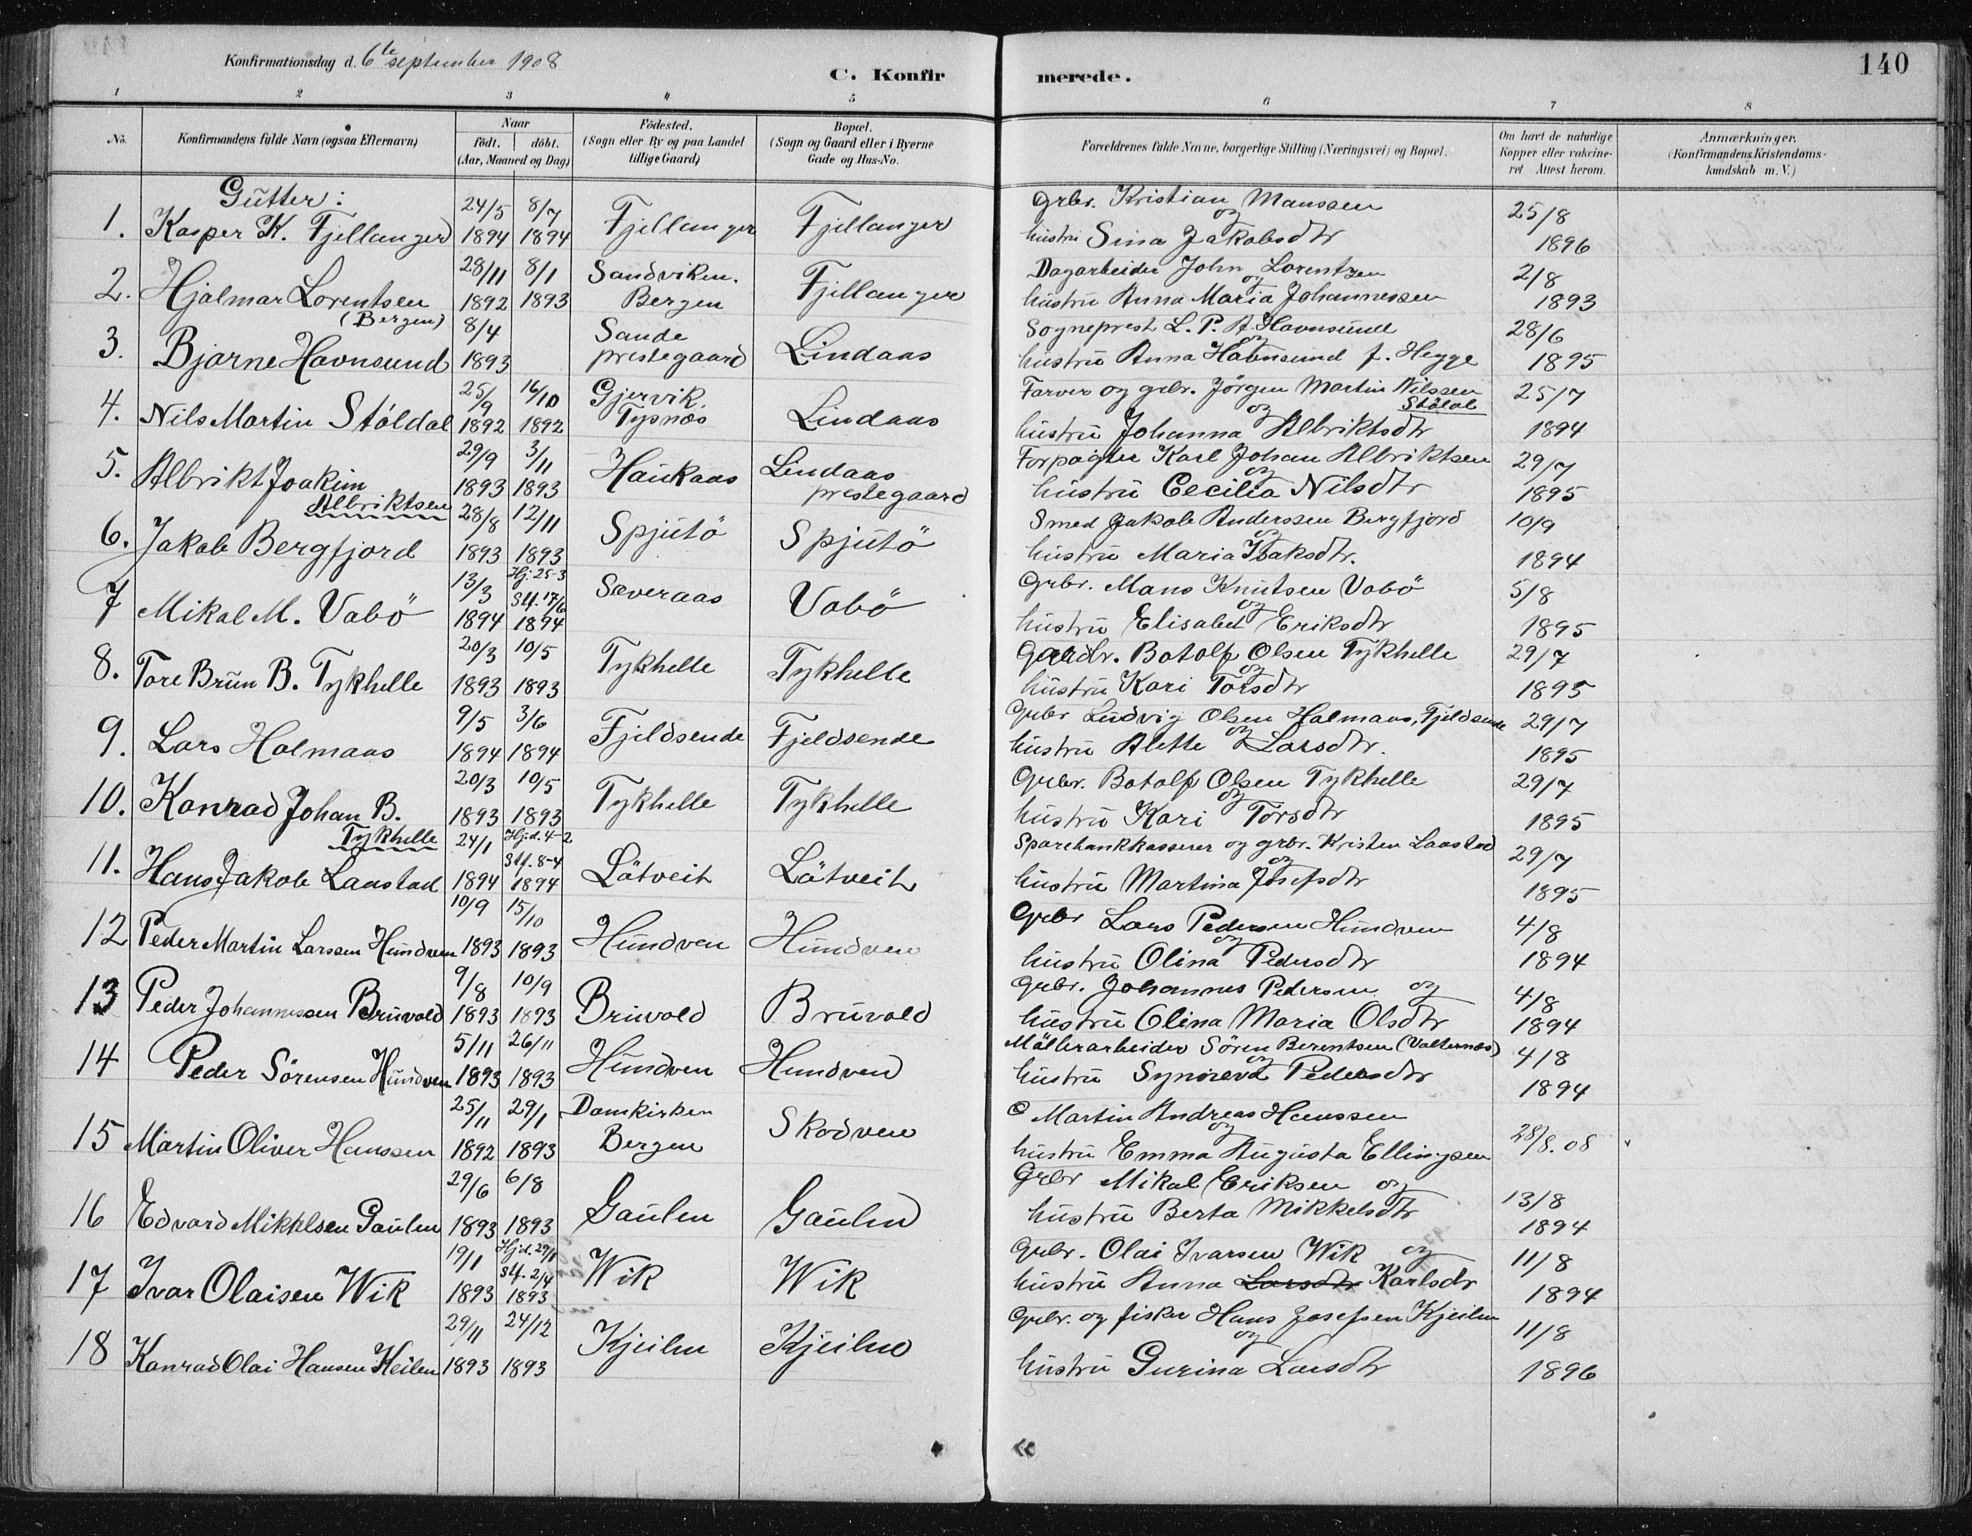 Konfirmationsdag d. 6te september 1908
C. Konfirmerede.
140
1 2 3 4 5 6 7 8
No. Konfirmandens fulde Navn (ogsaa Efternavn) Naar födt. döbt. (Aar, Maaned og Dag) Födested. (Sogn eller By og paa Landet tillige Gaard) Bopæl. (Sogn og Gaard eller i Byerne Gade og Hus-No. Forældrenes fulde Navne, borgerlige Stilling (Næringsvei) og Bopæl. Om havt de naturlige Kopper eller vakcineret Attest herom. Anmærkninger. (Konfirmandens Kristendomskundskab m. V.)
Gutter:
1. Kasper K. Fjellanger 24/5 1894 8/7 1894 Fjellanger Fjellanger Grbr. Kristian Monssen og
hustru Sina Jakobsdtr 25/8 1896
2. Hjalmar Lorentsen (Bergen) 28/11 1892 8/1 1893 Sandviken. Bergen Fjellanger Dagarbeider John Lorentzen og
hustru Anna Maria Johannessen 2/8 1893
3. Bjarne Havnsund 8/4 1893 Sande prestegaard Lindaas Sogneprest L. P. A. Havnsund og
hustru Anna Havnsund f. Hegge 28/6 1895
4. Nils Martin Stöldal 25/9 1892 16/10 1892 Gjervik, Tysnæs Lindaas Farver og grbr. Jörgen Martin Nilssen Stölal og
hustru Johanna Albriktsdtr 25/7 1894
5. Albrikt Joakim Albriktsen 29/9 1893 3/11 1893 Haukaas Lindaas prestegaard Forpagter Karl Johan Albriktsen og
hustru Cecilia Nilsdtr 29/7 1895
6. Jakob Bergfjord 28/8 1893 12/11 1893 Spjutö Spjutö Smed Jakob Anderssen Bergfjord og
hustru Maria Isaksdtr. 10/9 1894
7 Mikal M. Vabö 13/3 1894 Hj. 25-3 Stf. 17/6 1894 Sæveraas Vabö Grbr. Mons Knutsen Vabö og
hustru Elisabet Eriksdtr 5/8 1895
8. Tore Brun B. Tykhelle 20/3 1893 10/5 1893 Tykhelle Tykhelle Botolf Olsen Tykhelle og
hustru Kari Torsdtr 29/7 1895
9. Lars Holmaas 9/5 1894 3/6 1894 Fjeldsende Fjeldsende Grbr Ludvig Olsen Holmaas, Fjeldsende og
hustru Alette Larsdtr. 29/7 1895
10. Konrad Johan B. Tykhelle 20/3 1893 10/5 1893 Tykhelle Tykhelle Grbr. Botolf Olsen Tykhelle og
hustru Kari Torsdtr 29/7 1895
11. Hans Jakob Laastad 24/1 1894 Hj.d. 4-2 Stf. 8-4 1894 Lötveit Lötveit Sparebankkasserer og grbr. Kristen Laastad og
hustru Martina Josefsdtr 29/7 1895
12 Peder Martin Larssen Hundven 10/9 1893 15/10 1893 Hundven Hundven Grbr Lars Pedersen Hundven og
hustru Olina Pedersdtr 4/8 1894
13 Peder Johannessen Bruvold 9/8 1893 10/9 1893 Bruvold Bruvold Grbr. Johannes Pedersen og
hustru Olina Maria Olsdtr 4/8 1894
14 Peder Sörensen Hundven 5/11 1893 26/11 1893 Hundven Hundven Möllerarbeider Sören Berentsen (Valternæs) og
hustru Synneva Pedersdtr 4/8 1894
15 Martin Oliver Hanssen 25/11 1892 29/1 1893 Domkirken Bergen Skodven Martin Andreas Hanssen og
hustru Emma Augusta Ellingsen 28/8.08
16 Edvard Mikkelsen Gaulen 29/6 1893 6/8 1893 Gaulen Gaulen Grbr Mikal Eriksen og
hustru Berta Mikkelsdtr 13/8 1894
17 Ivar Olaisen Wik 19/1 1893 Hj.d. 29/1 Stf. 2/4 1893 Wik Wik Grbr. Olai Ivarsen Wik og
hustru Anna Larsdtr Karlsdtr 11/8 1894
18 Konrad Olai Hansen Keilen 29/11 1893 24/12 1893 Kjeilen Kjeilen Grbr. og fisker Hans Josefsen Kjeilen og
hustru Gurina Larsdtr 11/8 1896